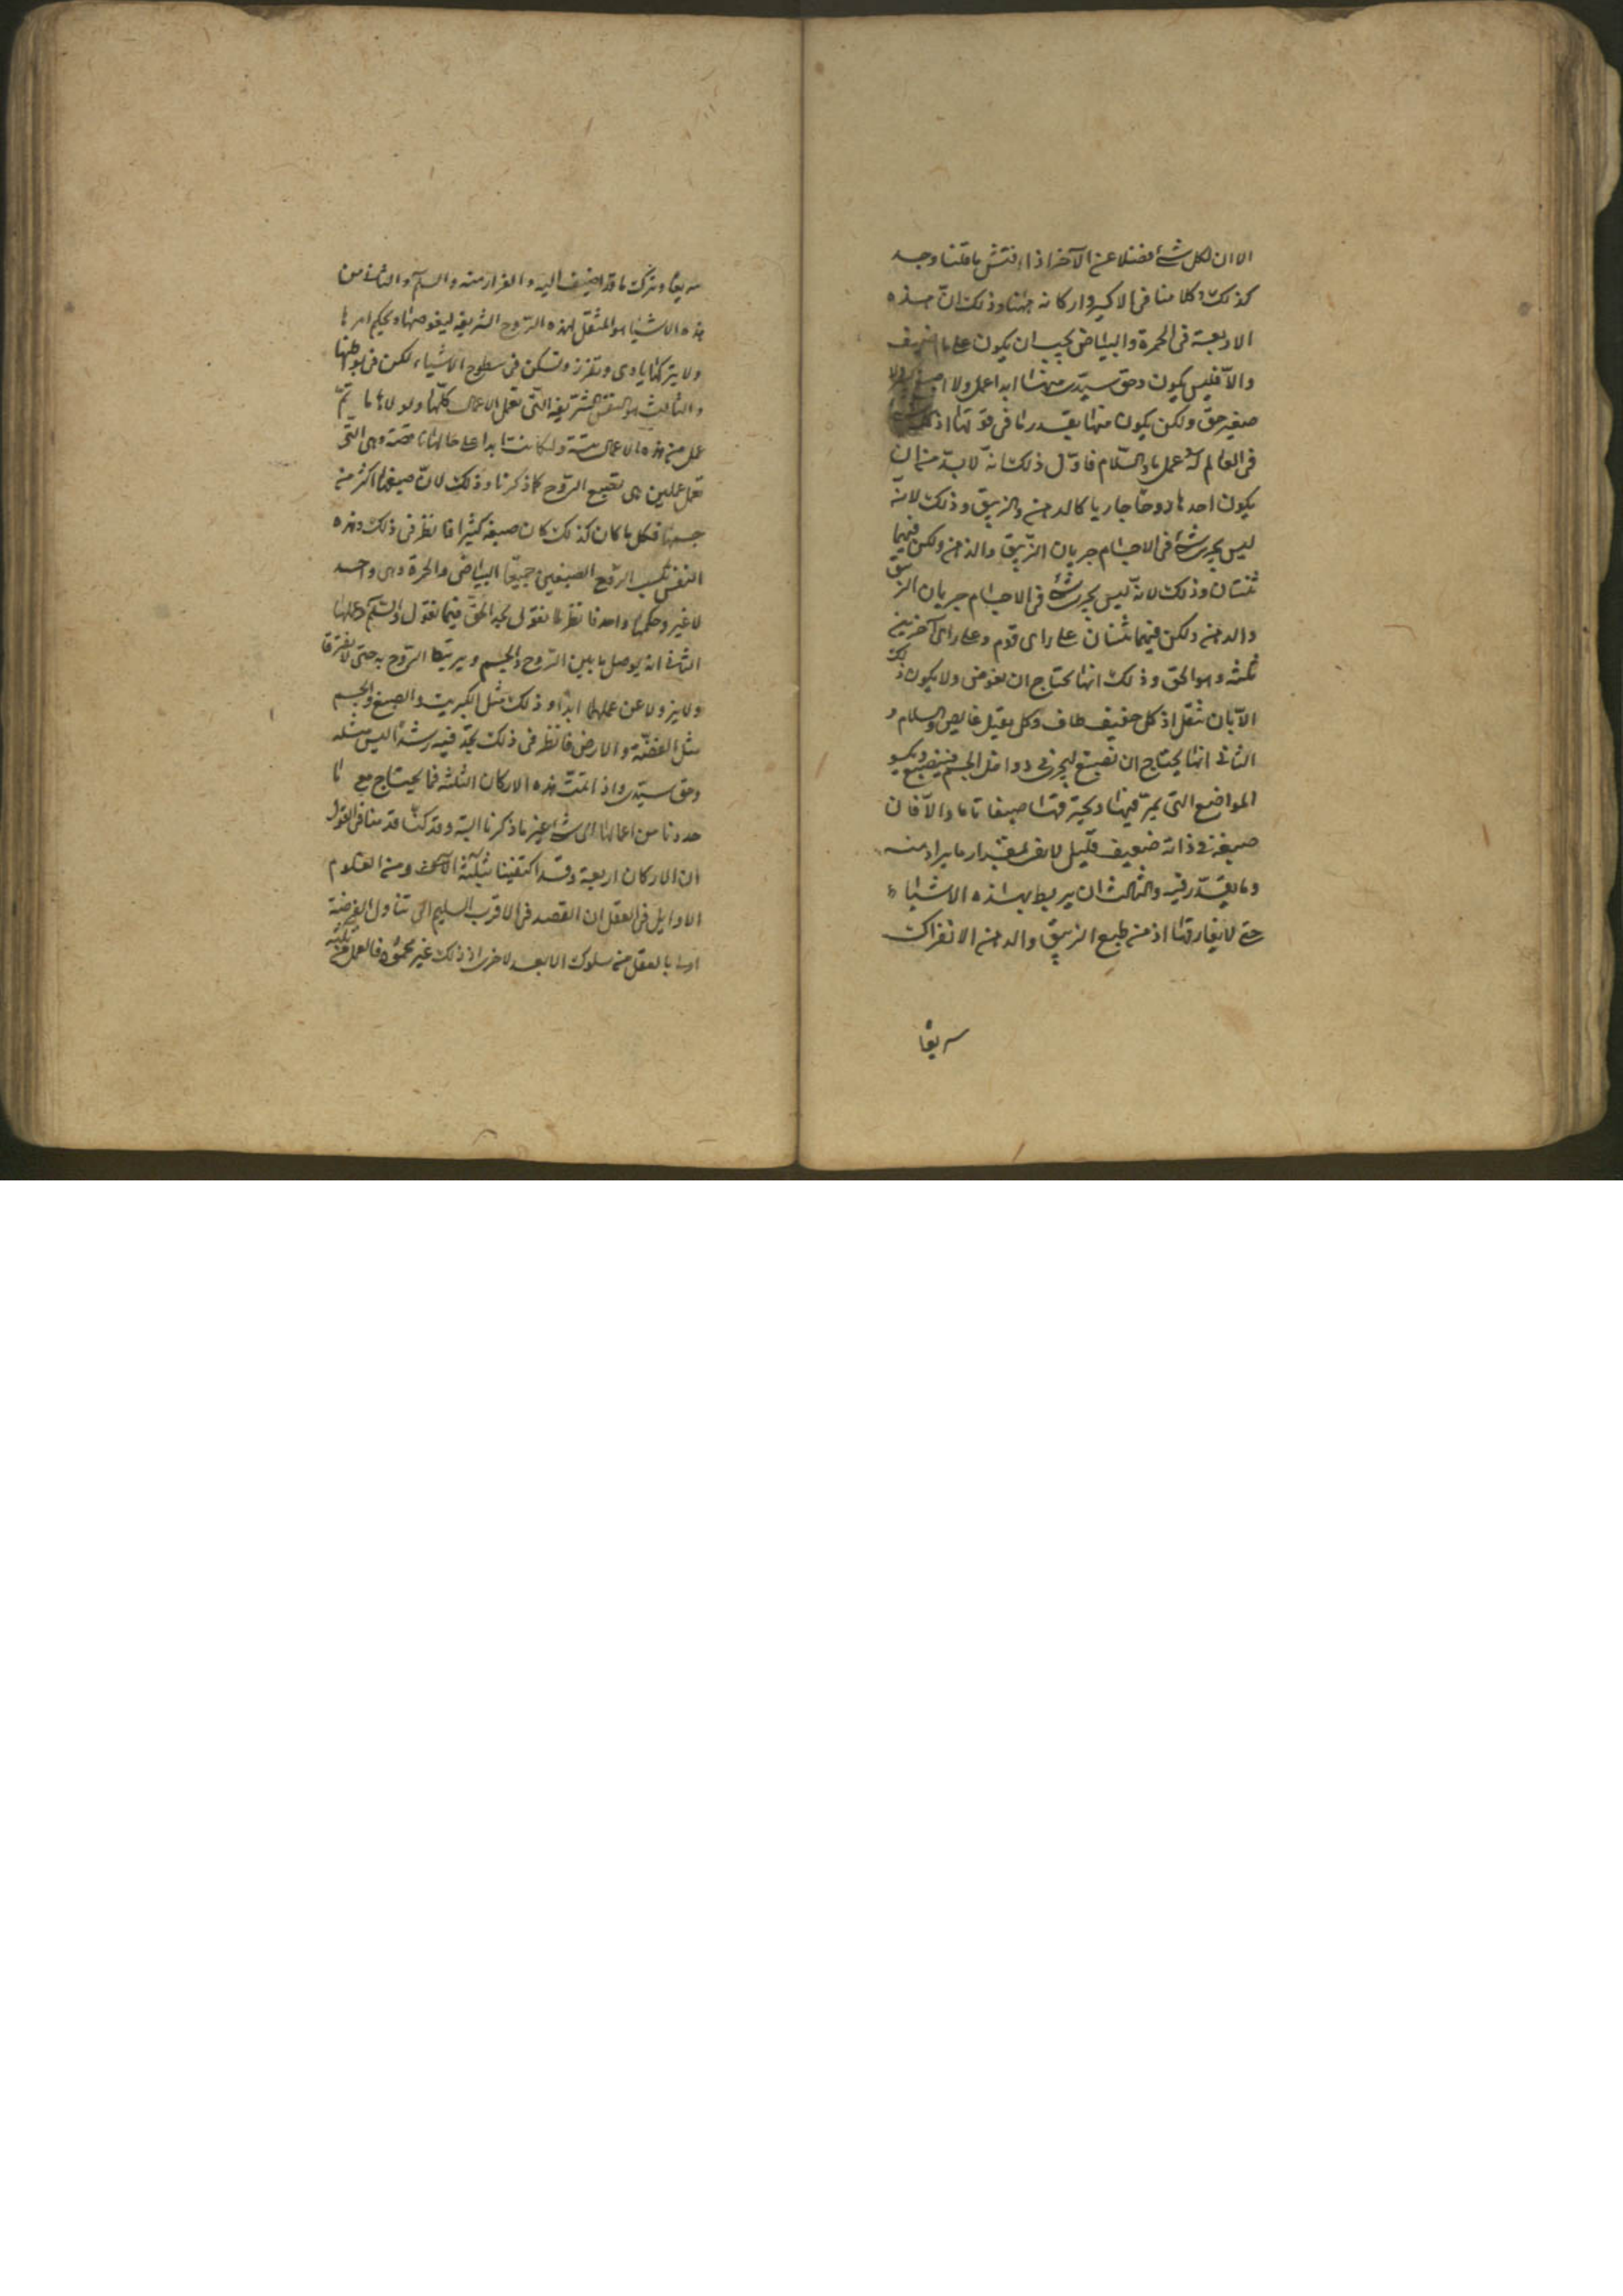 الا ان لكل شئ فضلا عن الآخر اذا فتش ما قلنا وجد
كذلك وكلامنا فى الاكسير واركانه هٰهنا وذلك انّ هذه
الاربعة فى الحمرة والبياض يجب ان يكون على ما اضيف
والّا فليس يكون وحق سيّدى منها ابدا عمل ولا
صغير حق ولكن يكون منها بقدر ما فى قوتها اذ
فى العالم له عمل ما والسّلام فاوّل ذلك انه لابدّ من ان
يكون احدها روحا جاريا كالدهن والزيبق وذلك لانه
ليس يجرى شئ فى الاجسام جريان الزّيبق والدهن ولكن فيهما
ثنتان وذلك لانّه ليس يجرى شئ فى الاجسام جريان الزيبق
والدهن ولكن فيهما ثنتان على راى قوم وعلى راى آخرين
ثلثه وهو الحق وذلك انها يحتاج ان يغوص ولا يكون ذلك
الّا بان تثقل اذ كل خفيف طاف وكل ثقيل غايص والسلام و
الثانى انها يحتاج ان تصبغ ليجرى فى دواخل الجسم فينصبغ
المواضع التى يمرّ فيها ويخترقها صبغا تاما والّا فان
صبغه فى ذاته ضعيف قليل لا يفى بمقدار ما يراد منه
وما يقدّر فيه والثالث ان يربط بهذه الاشياء
حتى لا يفارقها اذ من طبع الزيبق والدهن الانفراك
سريعا
سريعا وترك ما قد اضيف اليه والفرار منه والسلم والثانى من
هذه الاشيا هو المثقل لهذه الرّوح الشريفه ليغوصها ويحكم امرها
ولا يتركها ياوى وتفرز وتسكن فى سطوح الاشياء لكن فى بواطنها
والثالث هو النفس الشريفه التّى تعمل الاعمال كلّها ولولاها ما تمّ
عمل من هذه الاعمال بتة ولكانت ابدا على حالها ناقصة وهى التى
تعمل عملين هى تصبغ الرّوح كما ذكرنا وذلك لانّ صبغها اكثر من
جسمها فكل ما كان كذلك كان صبغه كثيرا فانظر فى ذلك وهذه
النفس تكسب الرّوح الصبغين جميعا البياض والحمرة وهى واحد
لا غير وحكمها واحد فانظر ما نقول تجد الحقّ فيما نقول والسّلم وعملها
الثانى انه يوصل ما بين الرّوح والجسم ويرتبط الرّوح به حتى لا يفترقا
ولا يزولا عن عملهما ابدا وذلك مثل الكبريت والصبغ والجسم
مثل الفضّة والارض فانظر فى ذلك تجد فيه رشدا ليس مثله
وحق سيّدى واذا تمّت هذه الاركان الثلثه فما يحتاج مع ما
حددنا من اعمالها الى شئ غير ما ذكرنا البتة وقد كنّا قدمنا فى القول
ان الاركان اربعة وقد اكتفينا بثلثة الآن ومن العلوم
الاوايل فى العقل ان القصد فى الاقرب السليم الى تناول الغرضية
اولى بالعقل من سلوك الابعد لاخرى اذ ذلك غير محمود فالعمل من ثلثه